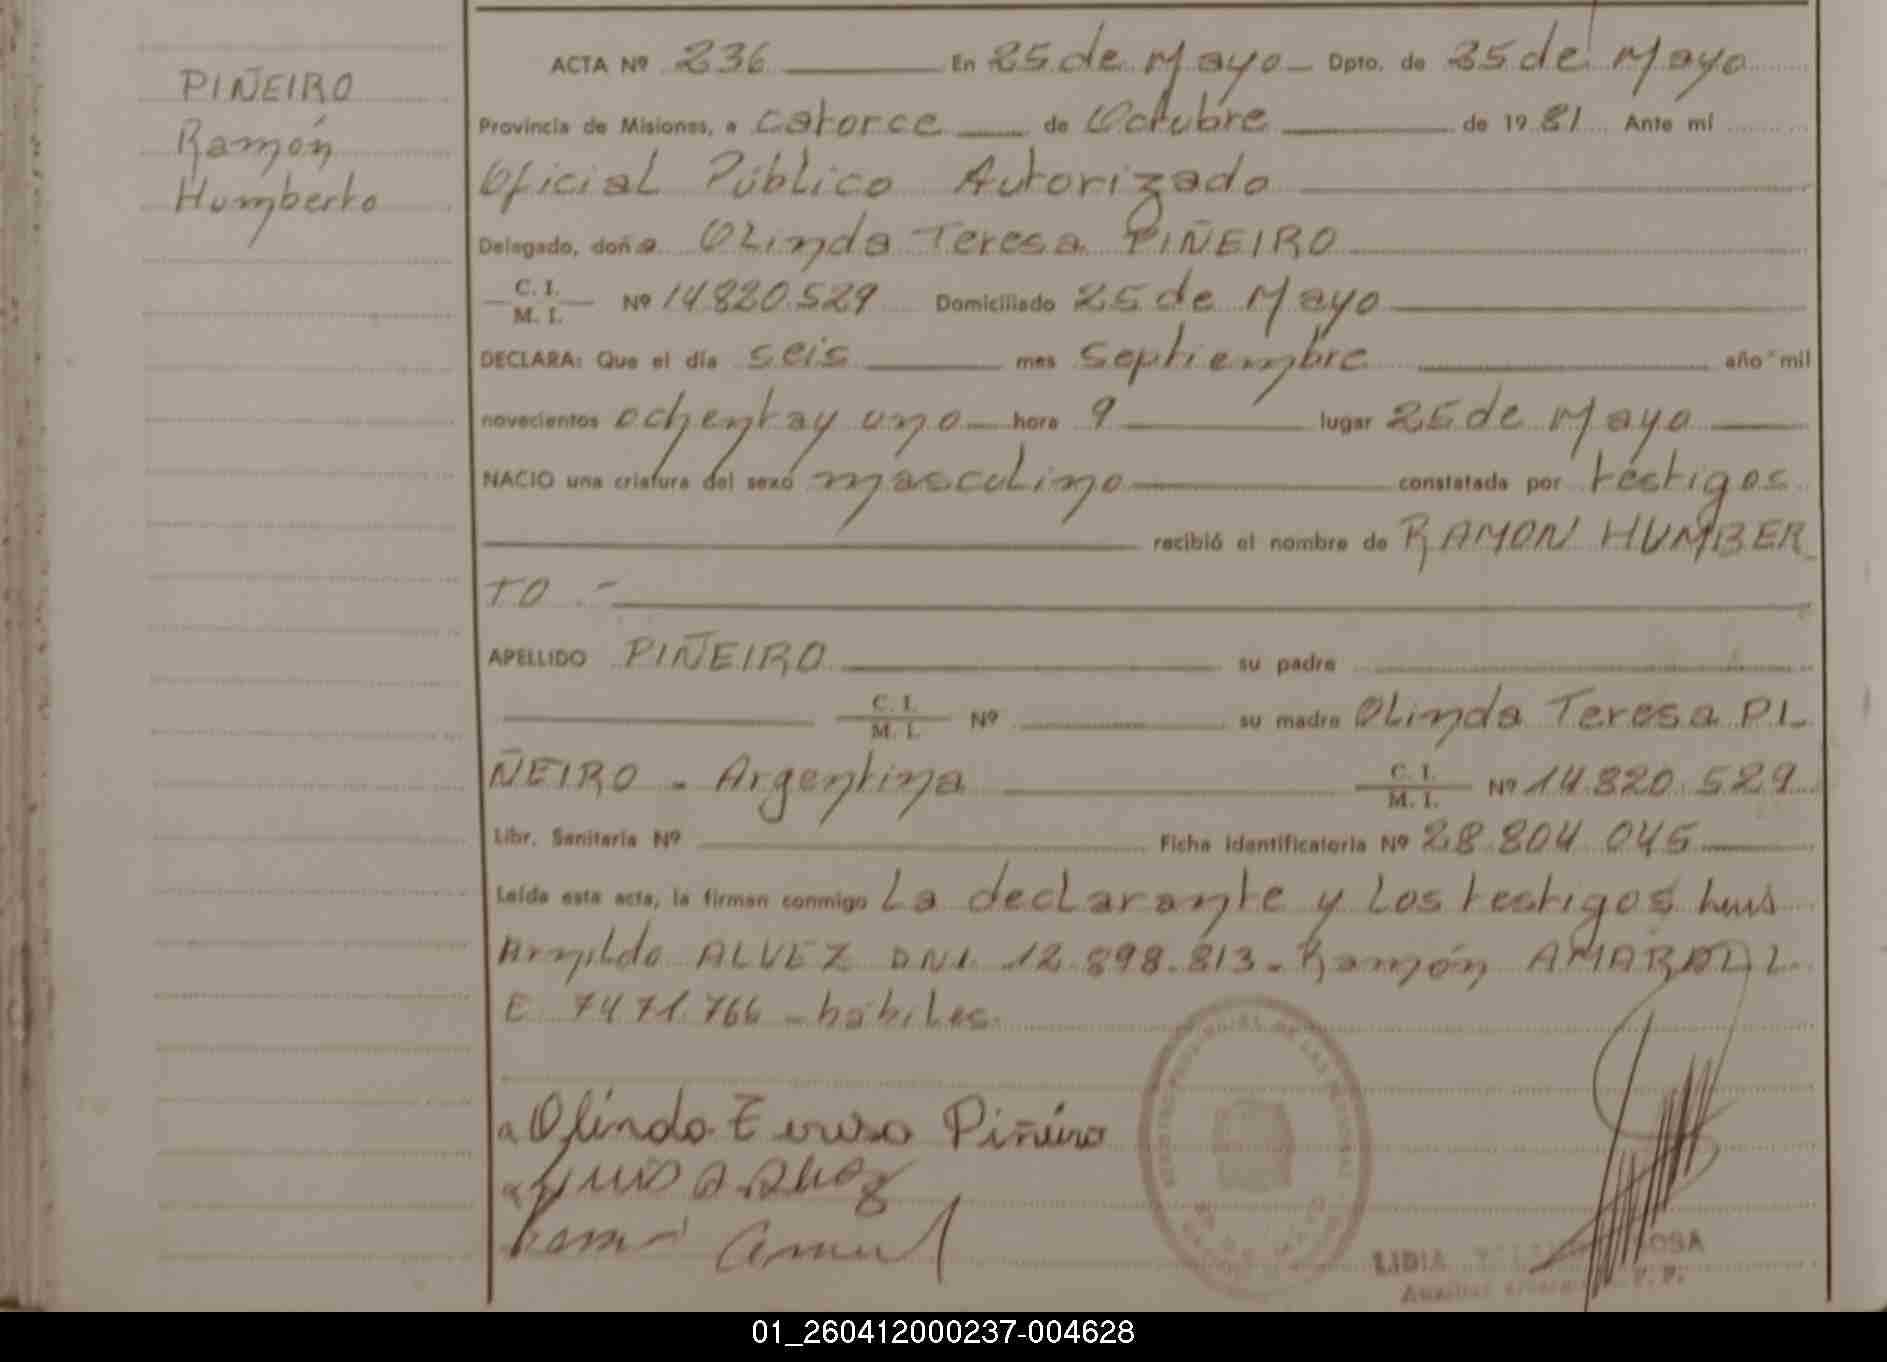 PIÑEIRO
Ramón
Humberto
ACTA Nº 236 En 25 de Mayo Dpto. de 25 de Mayo
Provincia de Misiones, a catorce de Octubre de 1981 Ante mí
Oficial Público Autorizado
Delegado, doña Olinda Teresa PIÑEIRO
C. I.
M. I. Nº 14.820.529 Domiciliado 25 de Mayo
DECLARA: Que el día seis mes septiembre año mil
novecientos ochenta y uno hora 9 lugar 25 de Mayo
NACIO una criatura del sexo masculino constatada por testigos
recibió el nombre de RAMON HUMBER
TO.-
APELLIDO PIÑEIRO su padre
C. I.
M. I. Nº su madre Olinda Teresa PI
ÑEIRO - Argentina C. I.
M. I. Nº 14.820.529
Libr. Sanitaria Nº Ficha identificatoria Nº 28.804.045
Leída esta acta, la firman conmigo La declarante y los testigos Luis
Arnildo ALVEZ DNI 12.898.813 - Ramón AMARAL L
E 7471.766 - hábiles.
Olinda Teresa Piñeiro
Luis A. Alvez
LIDIA
01_260412000237-004628